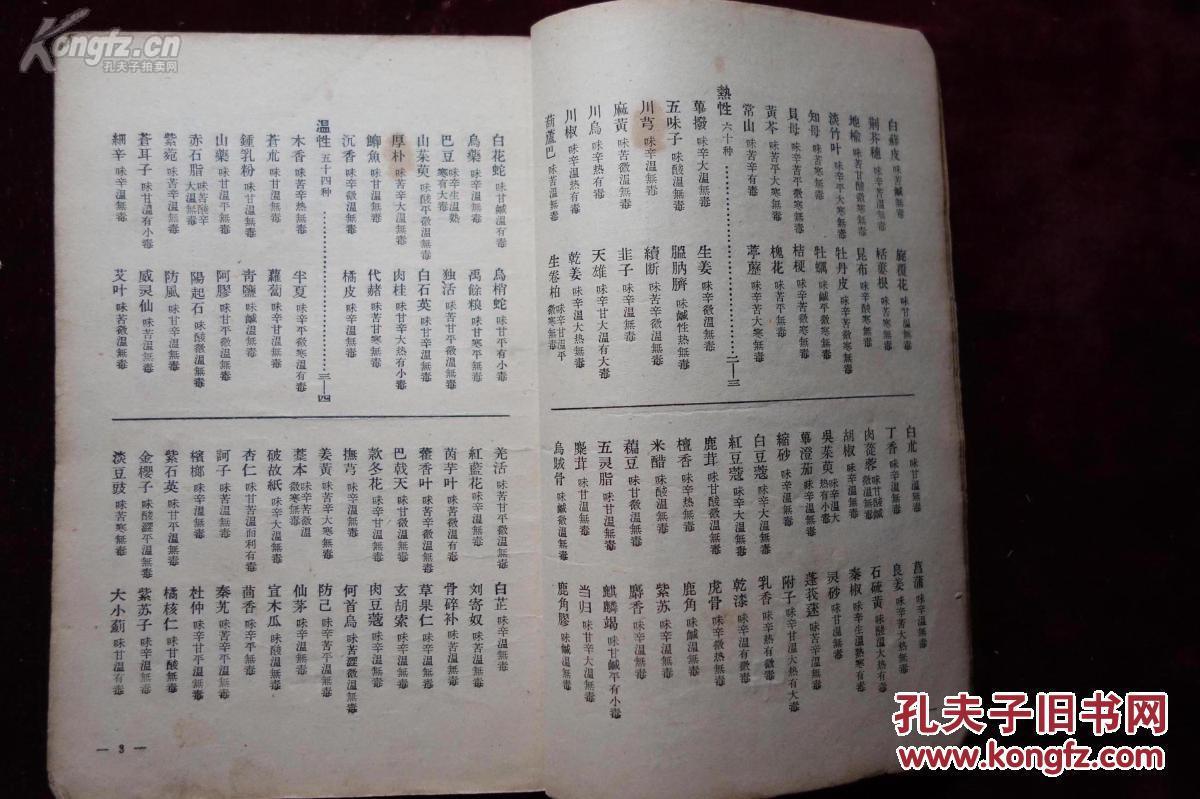 白蘚皮 味苦鹹無毒
荆芥穗 味辛苦溫無毒
地榆 味苦甘酸微寒無毒
淡竹叶 味辛平大寒無毒
知母 味苦寒無毒
貝母 味辛苦平微寒無毒
黃芩 味苦平大寒無毒
常山 味辛苦有毒
旋覆花 味甘溫無毒
栝蔞根 味苦寒無毒
昆布 味辛酸寒無毒
牡丹皮 味辛苦微寒無毒
牡蠣 味鹹平微寒無毒
桔梗 味辛苦微寒無毒
槐花 味苦平無毒
葶藶 味辛苦大寒無毒
熱性 六十种……二—三
蓽撥 味辛大溫無毒
五味子 味酸溫無毒
川芎 味辛溫無毒
麻黃 味苦微溫無毒
川烏 味辛甘溫熱有毒
川椒 味辛溫热有毒
葫蘆巴 味苦溫無毒
生姜 味辛微溫無毒
膃肭臍 味鹹性热無毒
續断 味苦辛微溫無毒
韭子 味辛溫無毒
天雄 味辛甘大溫有大毒
乾姜 味辛溫大热無毒
生卷柏 味辛甘溫平微寒無毒
白朮 味甘溫無毒
丁香 味辛溫無毒
肉蓯蓉 味甘酸鹹微溫無毒
胡椒 味辛溫無毒
吳茱萸 味辛溫大热有小毒
蓽澄茄 味辛溫無毒
縮砂 味辛溫無毒
白豆蔻 味辛大溫無毒
紅豆蔻 味辛溫無毒
鹿茸 味甘酸微溫無毒
檀香 味辛热無毒
米醋 味酸溫無毒
藊豆 味甘微溫無毒
五灵脂 味甘溫無毒
麋茸 味甘溫無毒
烏賊骨 味鹹微溫無毒
菖蒲 味辛溫無毒
良姜 味辛苦大热無毒
石硫黃 味酸溫大热有毒
秦椒 味辛生溫熟寒有毒
灵砂 味甘溫無毒
蓬莪蒁 味苦辛溫無毒
附子 味辛甘溫大热有大毒
乳香 味辛热有微毒
乾漆 味辛溫有微毒
虎骨 味辛微热無毒
鹿角 味鹹溫無毒
紫苏 味辛溫無毒
麝香 味辛溫無毒
麒麟竭 味甘鹹平有小毒
当归 味甘辛大溫無毒
鹿角膠 味鹹溫無毒
白花蛇 味甘鹹溫有毒
烏藥 味辛溫無毒
巴豆 味辛生溫熟寒有大毒
山茱萸 味酸平微溫無毒
厚朴 味苦辛大溫無毒
鯽魚 味甘溫無毒
沉香 味辛微溫無毒
烏梢蛇 味甘平有小毒
禹餘粮 味甘寒平無毒
独活 味苦甘平微溫無毒
白石英 味甘辛溫無毒
肉桂 味甘辛大热有小毒
代赭 味苦甘寒無毒
橘皮 味辛溫無毒
溫性 五十四种……三—四
木香 味苦辛热無毒
蒼朮 味甘辛溫無毒
鍾乳粉 味甘溫無毒
山藥 味甘溫平無毒
赤石脂 味苦酸辛大溫無毒
紫菀 味苦辛溫無毒
蒼耳子 味甘溫有小毒
細辛 味辛溫無毒
半夏 味辛平微寒溫有毒
蘿蔔 味辛甘溫無毒
青鹽 味鹹溫無毒
阿膠 味甘平微溫無毒
陽起石 味酸微溫無毒
防風 味甘辛溫無毒
威灵仙 味苦溫無毒
艾叶 味苦微溫無毒
羌活 味苦甘平微溫無毒
紅藍花 味辛溫無毒
茵芋叶 味苦微溫有毒
藿香叶 味苦辛微溫無毒
巴戟天 味甘微溫無毒
款冬花 味辛甘溫無毒
撫芎 味辛溫無毒
姜黃 味辛苦大寒無毒
藁本 味辛苦微溫微寒無毒
破故紙 味辛大溫無毒
杏仁 味甘苦溫而利有毒
訶子 味苦溫無毒
檳榔 味辛溫無毒
紫石英 味甘平溫無毒
金櫻子 味酸澀平溫無毒
淡豆豉 味苦寒無毒
白芷 味辛溫無毒
刘寄奴 味苦溫無毒
骨碎补 味苦溫無毒
草果仁 味辛溫無毒
玄胡索 味辛溫無毒
肉豆蔻 味辛溫無毒
何首烏 味苦澀微溫無毒
防己 味辛苦平溫無毒
仙茅 味辛溫有毒
宜木瓜 味酸溫無毒
茴香 味辛平無毒
秦艽 味苦辛平溫無毒
杜仲 味辛甘平溫無毒
橘核仁 味甘酸無毒
紫苏子 味辛溫無毒
大小薊 味甘溫有毒
— 3 —
Kongfz.cn
孔夫子拍卖网
孔夫子旧书网
WWW.KONGFZ.COM